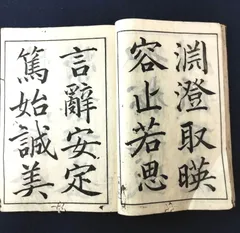 淵澄取暎
容止若思
言辭安定
篤始誠美